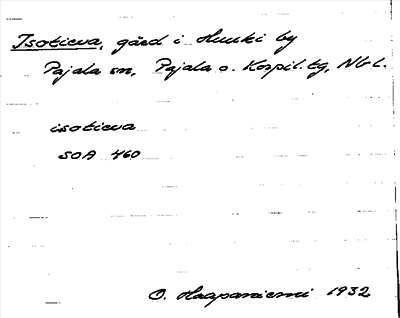 Isotieva, gård i Hunki by
Pajala sn, Pajala o. Korpil. tg, Nb L.
isotieva
SOA 460
O. Haapaniemi 1932